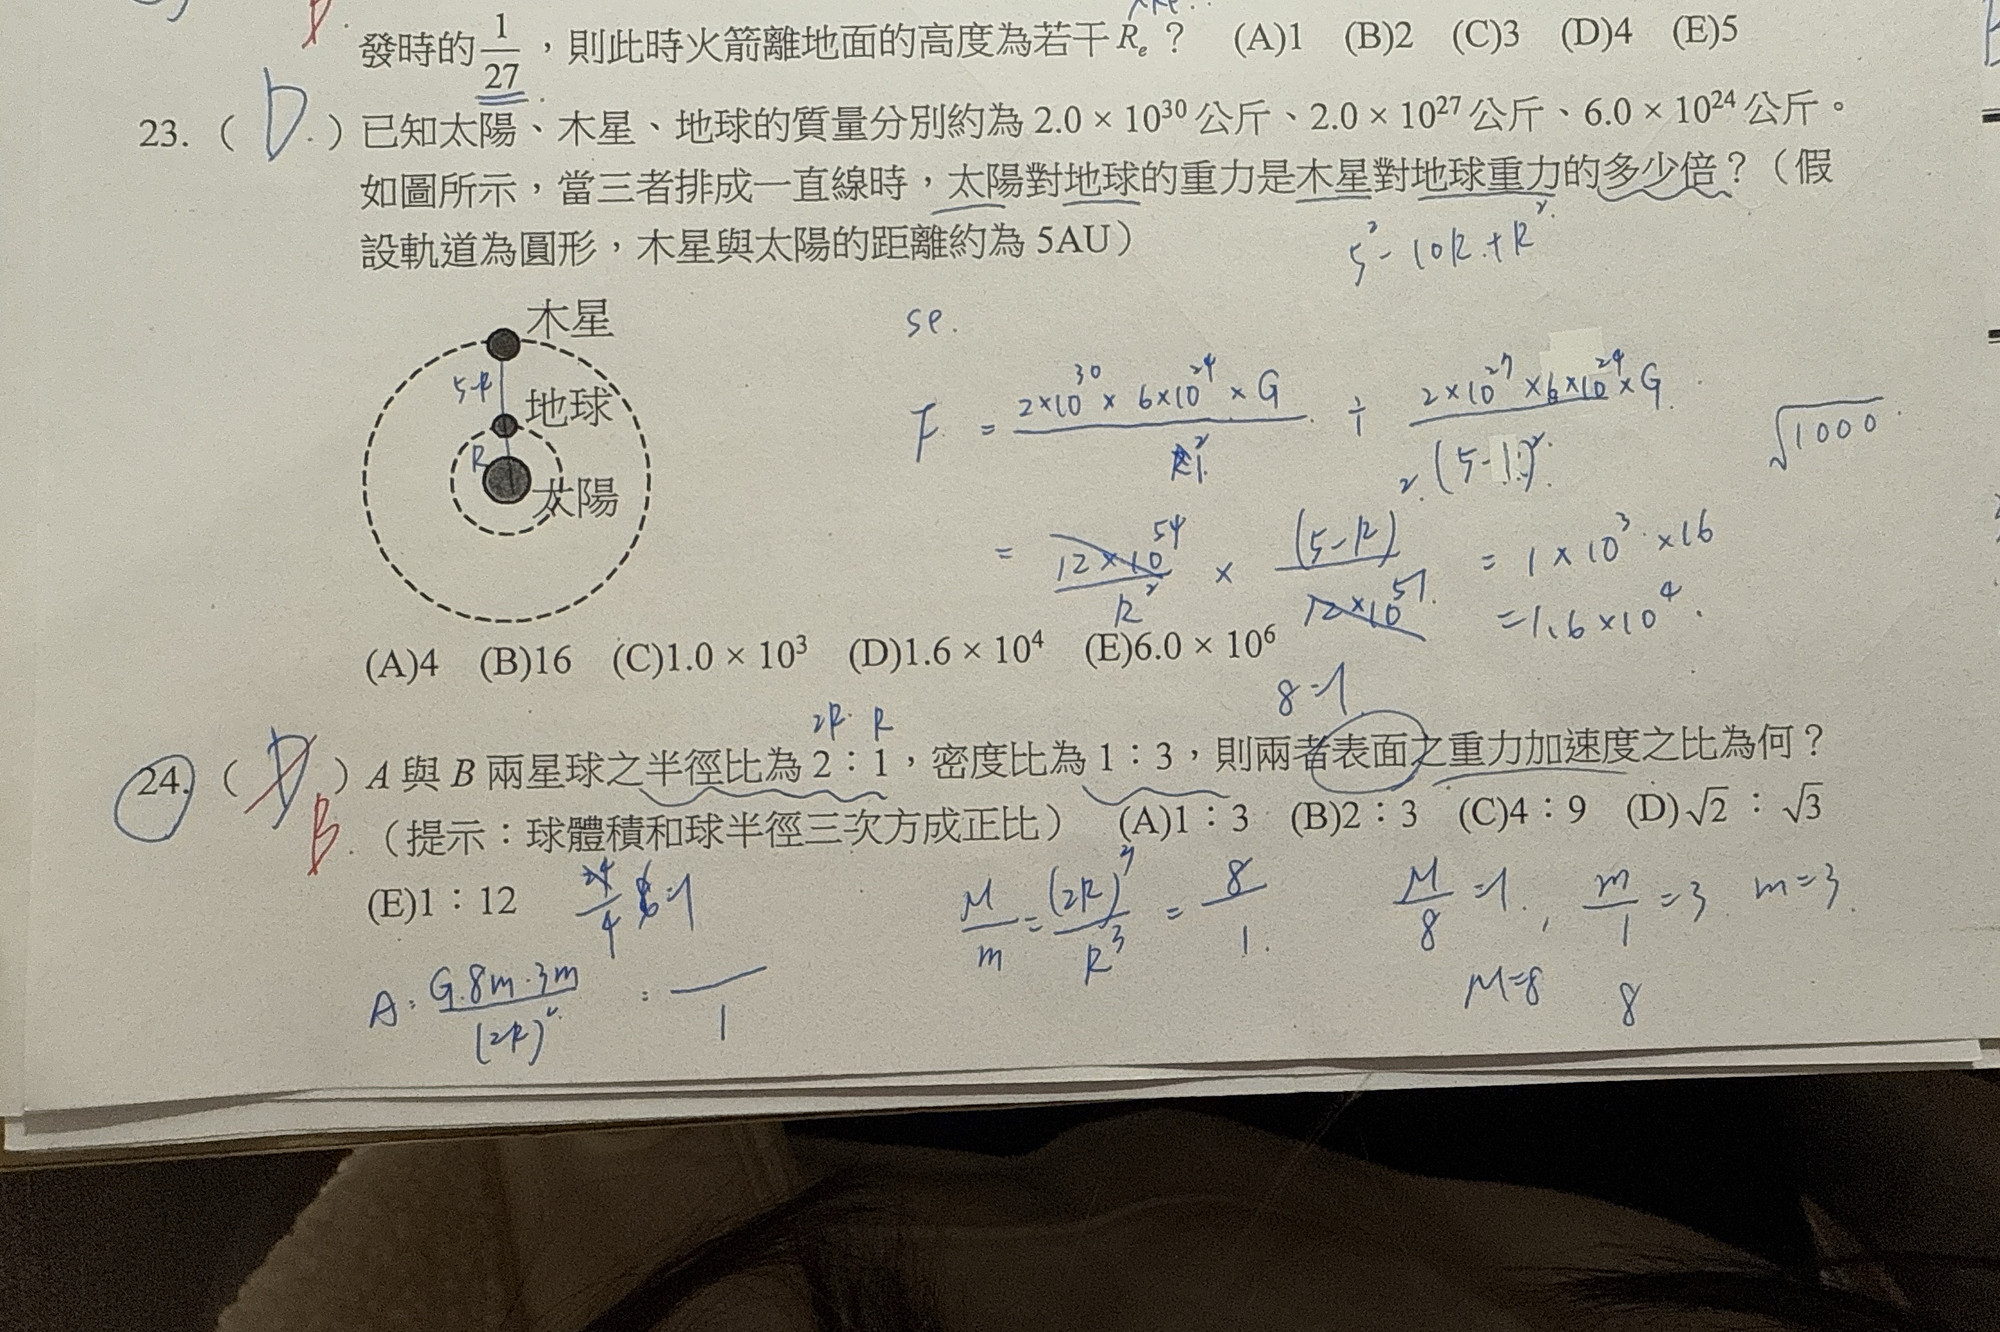 發時的 1/27，則此時火箭離地面的高度為若干 Re？ (A)1 (B)2 (C)3 (D)4 (E)5
23.（ D ）已知太陽、木星、地球的質量分別約為 2.0 × 10³⁰ 公斤、2.0 × 10²⁷ 公斤、6.0 × 10²⁴ 公斤。
如圖所示，當三者排成一直線時，太陽對地球的重力是木星對地球重力的多少倍？（假
設軌道為圓形，木星與太陽的距離約為 5AU）
5² - 10R + R²
木星
5-R
地球
R
太陽
se.
F = 2×10³⁰ × 6×10²⁴ × G / 1² ÷ 2×10²⁷ × 6×10²⁴ × G / (5-1)²
√1000
= 12×10⁵⁴ / R² × (5-R)² / 12×10⁵¹ = 1×10³×16
= 1.6×10⁴.
(A)4 (B)16 (C)1.0 × 10³ (D)1.6 × 10⁴ (E)6.0 × 10⁶
8=1
2R R
24.（ D ）A 與 B 兩星球之半徑比為 2：1，密度比為 1：3，則兩者表面之重力加速度之比為何？
B
（提示：球體積和球半徑三次方成正比） (A)1：3 (B)2：3 (C)4：9 (D)√2：√3
(E)1：12
M/m = (2R)³/R³ = 8/1.
M/8 = 1, m/1 = 3 m=3
M=8 8
A: G.8m.3m / (2R)² : /1